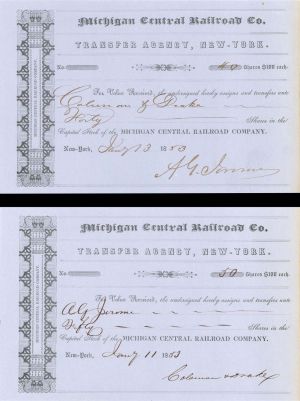 Michigan Central Railroad Co.
TRANSFER AGENCY, NEW-YORK.
No. 40 Shares $100 each.
For Value Received, the undersigned hereby assigns and transfers unto
Coleman & Drake
Forty Shares in the
Capital Stock of the MICHIGAN CENTRAL RAILROAD COMPANY.
New-York, Jany 13 1853
A. G. Jerome
MICHIGAN CENTRAL RAILROAD COMPANY.
Michigan Central Railroad Co.
TRANSFER AGENCY, NEW-YORK.
No. 50 Shares $100 each.
For Value Received, the undersigned hereby assigns and transfers unto
A G Jerome
Fifty Shares in the
Capital Stock of the MICHIGAN CENTRAL RAILROAD COMPANY.
New-York, Jany 11 1853
Coleman & Drake
MICHIGAN CENTRAL RAILROAD COMPANY.